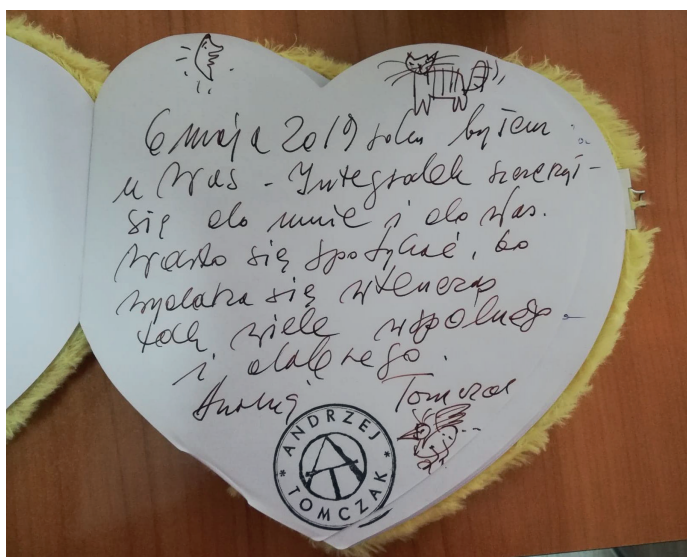 6 maja 2019 roku byłem
u Was - Integrałek szczerzył
się do mnie i do Was.
Warto się spotykać, bo
wydarza się wtenczas
tak wiele wspólnego
i dobrego.
Andrzej Tomczak
ANDRZEJ
TOMCZAK